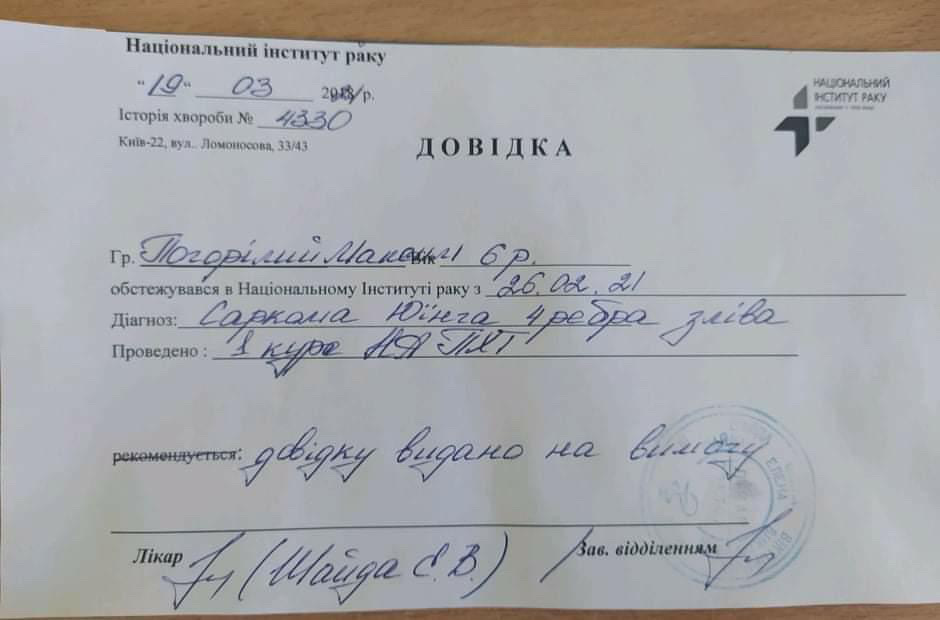 Національний інститут раку
"19" 03 р.
НАЦІОНАЛЬНИЙ
ІНСТИТУТ РАКУ
Історія хвороби № 4330
Київ-22, вул.. Ломоносова, 33/43
ДОВІДКА
Гр. Погорілий Максим Вік 6 р.
обстежувався в Національному Інституті раку з 26.02.21
Діагноз: Саркома Юінга 4 ребра зліва
Проведено : 1 курс НА ПХТ
рекомендується: довідку видано на вимогу
Лікар (Шайда Є.В.) Зав. відділенням